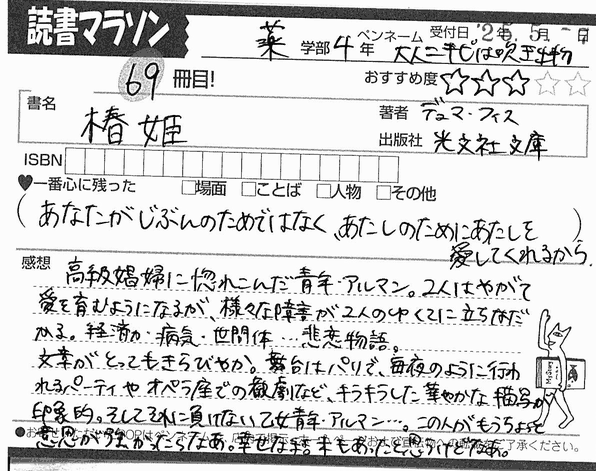 読書マラソン
薬 学部 4 年
ペンネーム 大人ニキビは吹き出物
受付日 '25. 5月 日
69 冊目!
おすすめ度 ☆☆☆☆☆
書名 椿姫
著者 デュマ・フィス
出版社 光文社文庫
ISBN
♥一番心に残った □場面 □ことば □人物 □その他
(あなたがじぶんのためではなく、あたしのためにあたしを
愛してくれるから。)
感想 高級娼婦に惚れこんだ青年・アルマン。2人はやがて
愛を育むようになるが、様々な障害が2人のゆくてに立ちはだ
かる。経済力・病気・世間体…悲恋物語。
文章がとってもきらびやか。舞台はパリで、毎夜のように行わ
れるパーティやオペラ座での観劇など、キラキラした華やかな描写が
印象的。そしてそれに負けない 青年・アルマン…。この人がもうちょっと
意思が強かったらなあ。幸せな結末もあったと思うけどなあ。